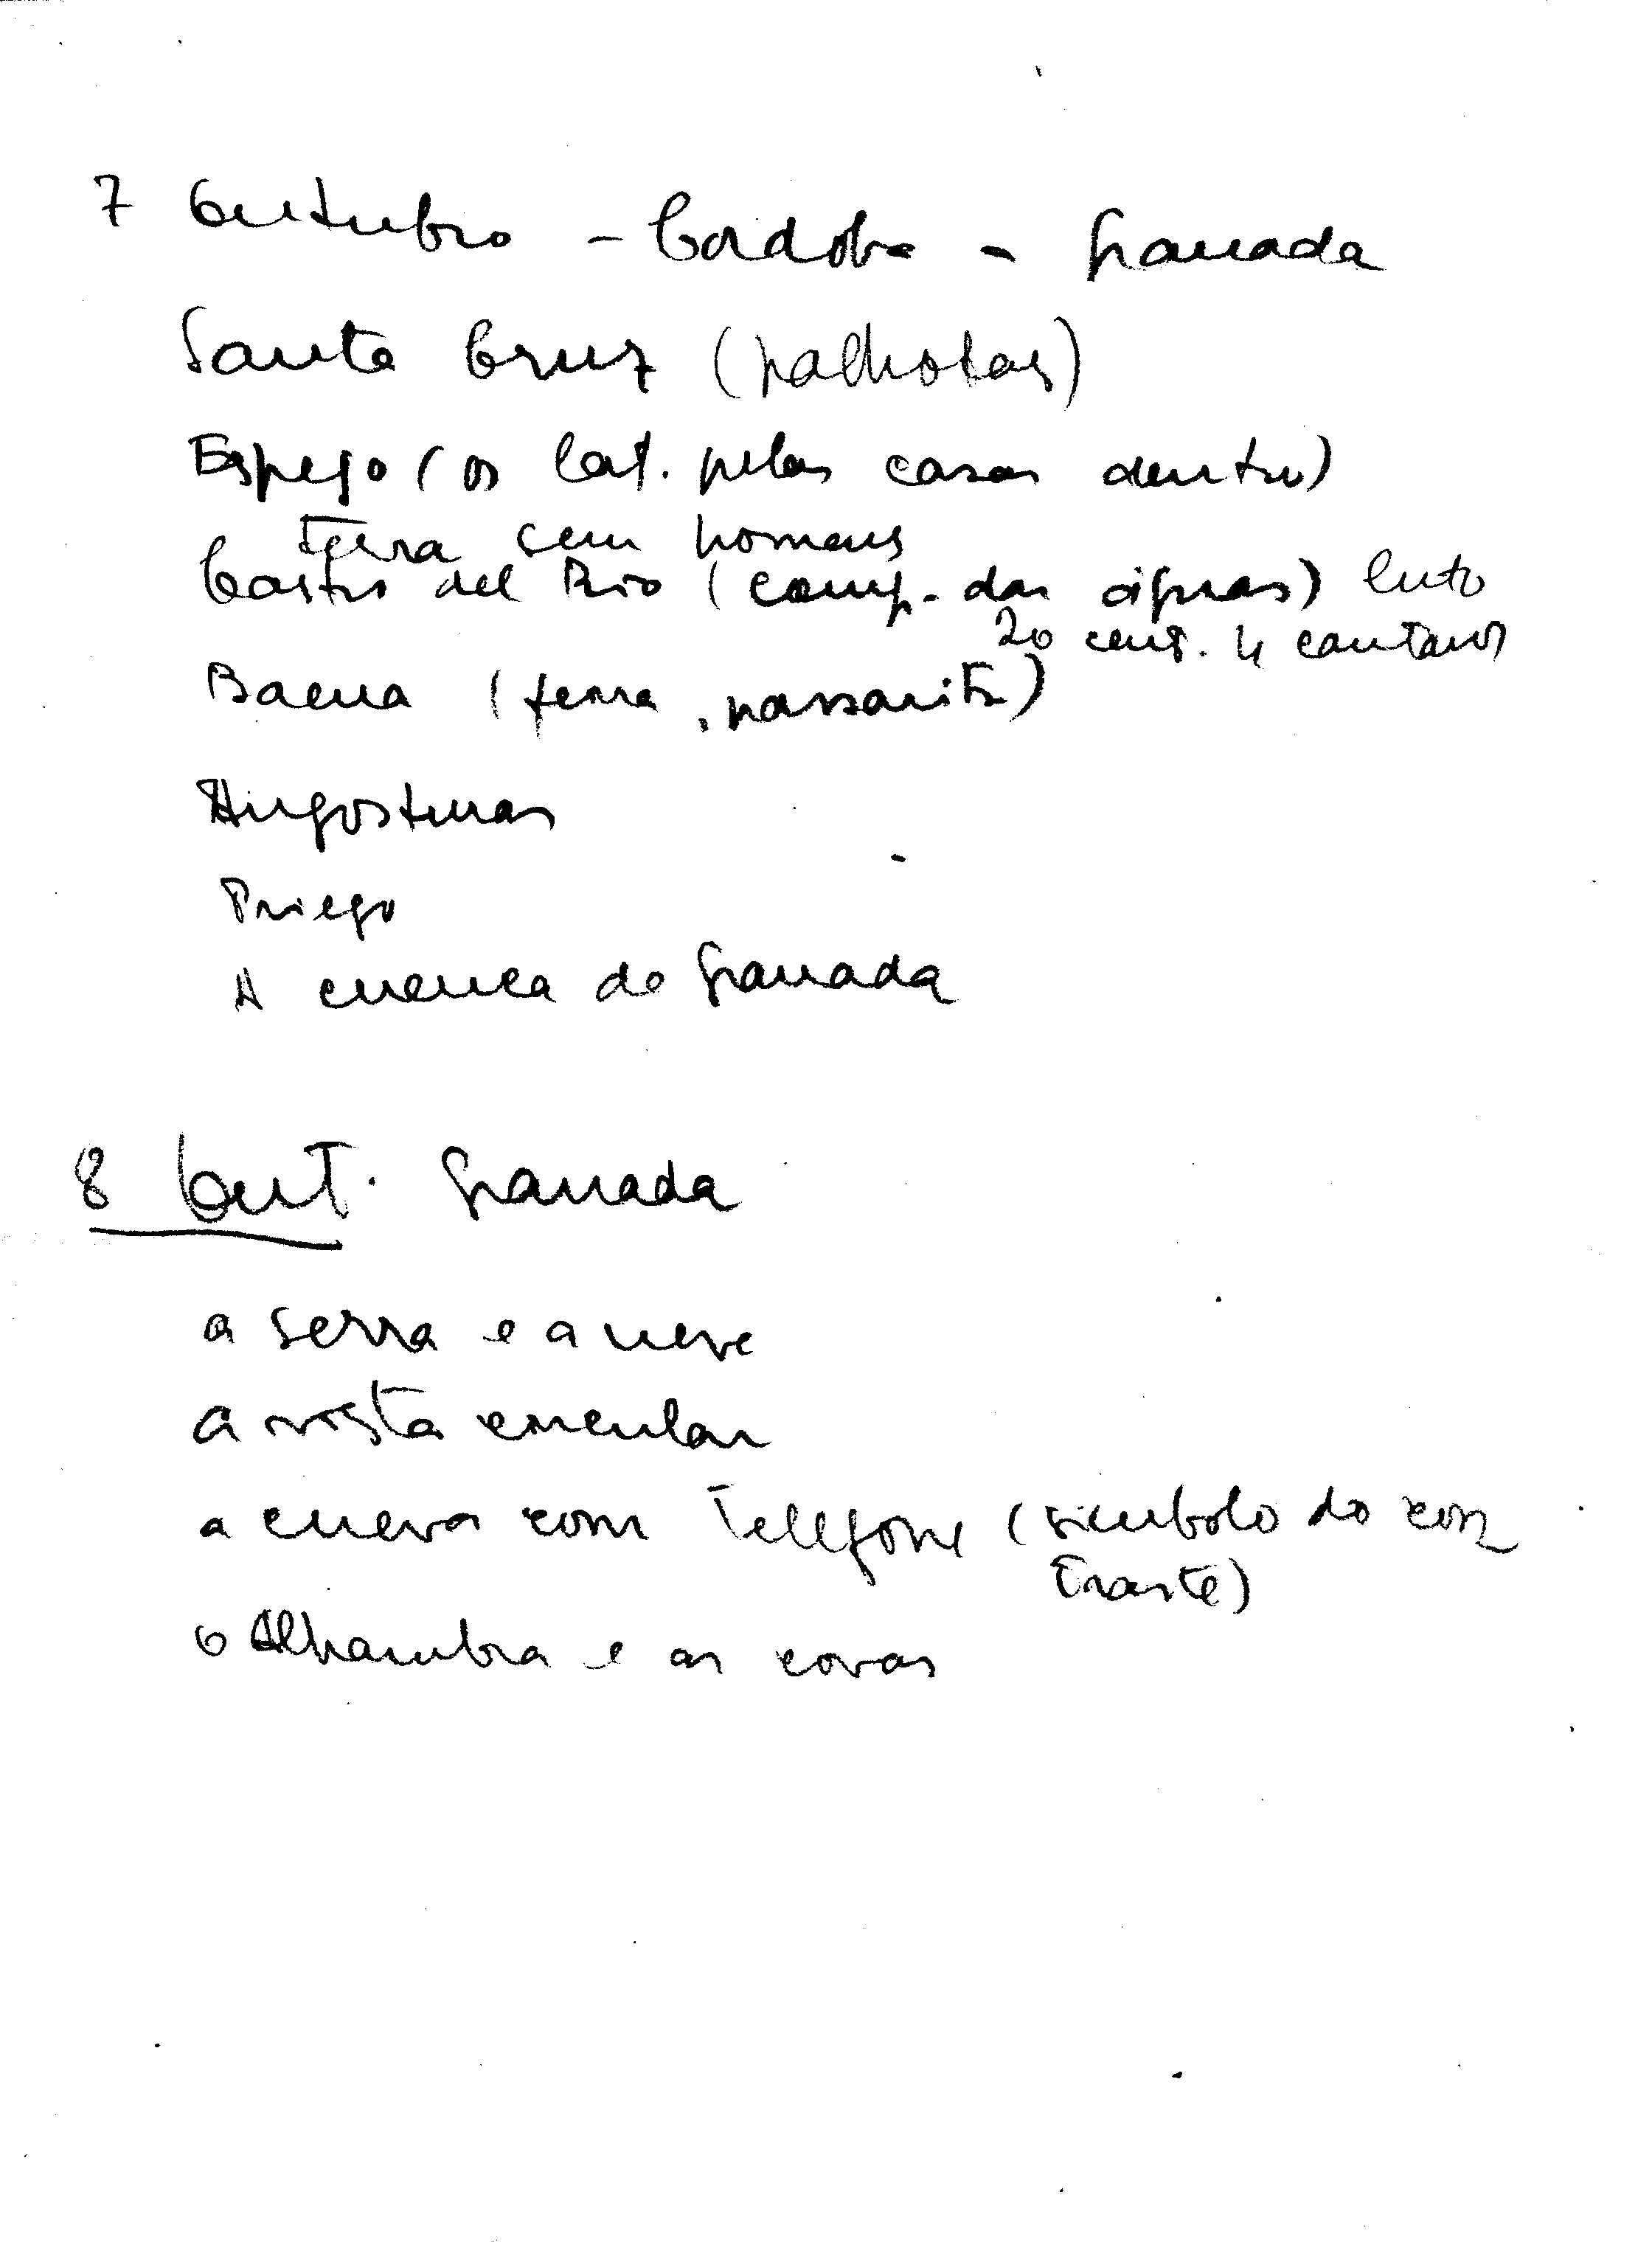 7 Outubro - Cordoba - Granada
Santa Cruz (palhotas)
Espejo (os lat. pelas casas dentro)
Terra sem homens
Castro del Rio (comp. das águas) luto
20 cent. 4 cantaros
Baena (terra,
Angosturas
Priego
A cuenca de Granada
8 Out. Granada
a serra e a neve
a vista circular
a cueva com telefone (simbolo do con
traste)
o Alhambra e as covas